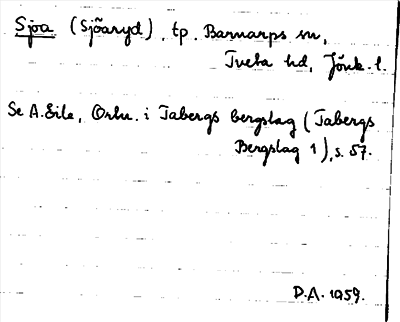 Sjöa (Sjöaryd), tp. Barnarps sn,
Tveta hd, Jönk. l.
Se A. Eile, Ortn. i Tabergs bergslag (Tabergs
Bergslag 1), s. 57.
D.A. 1959.